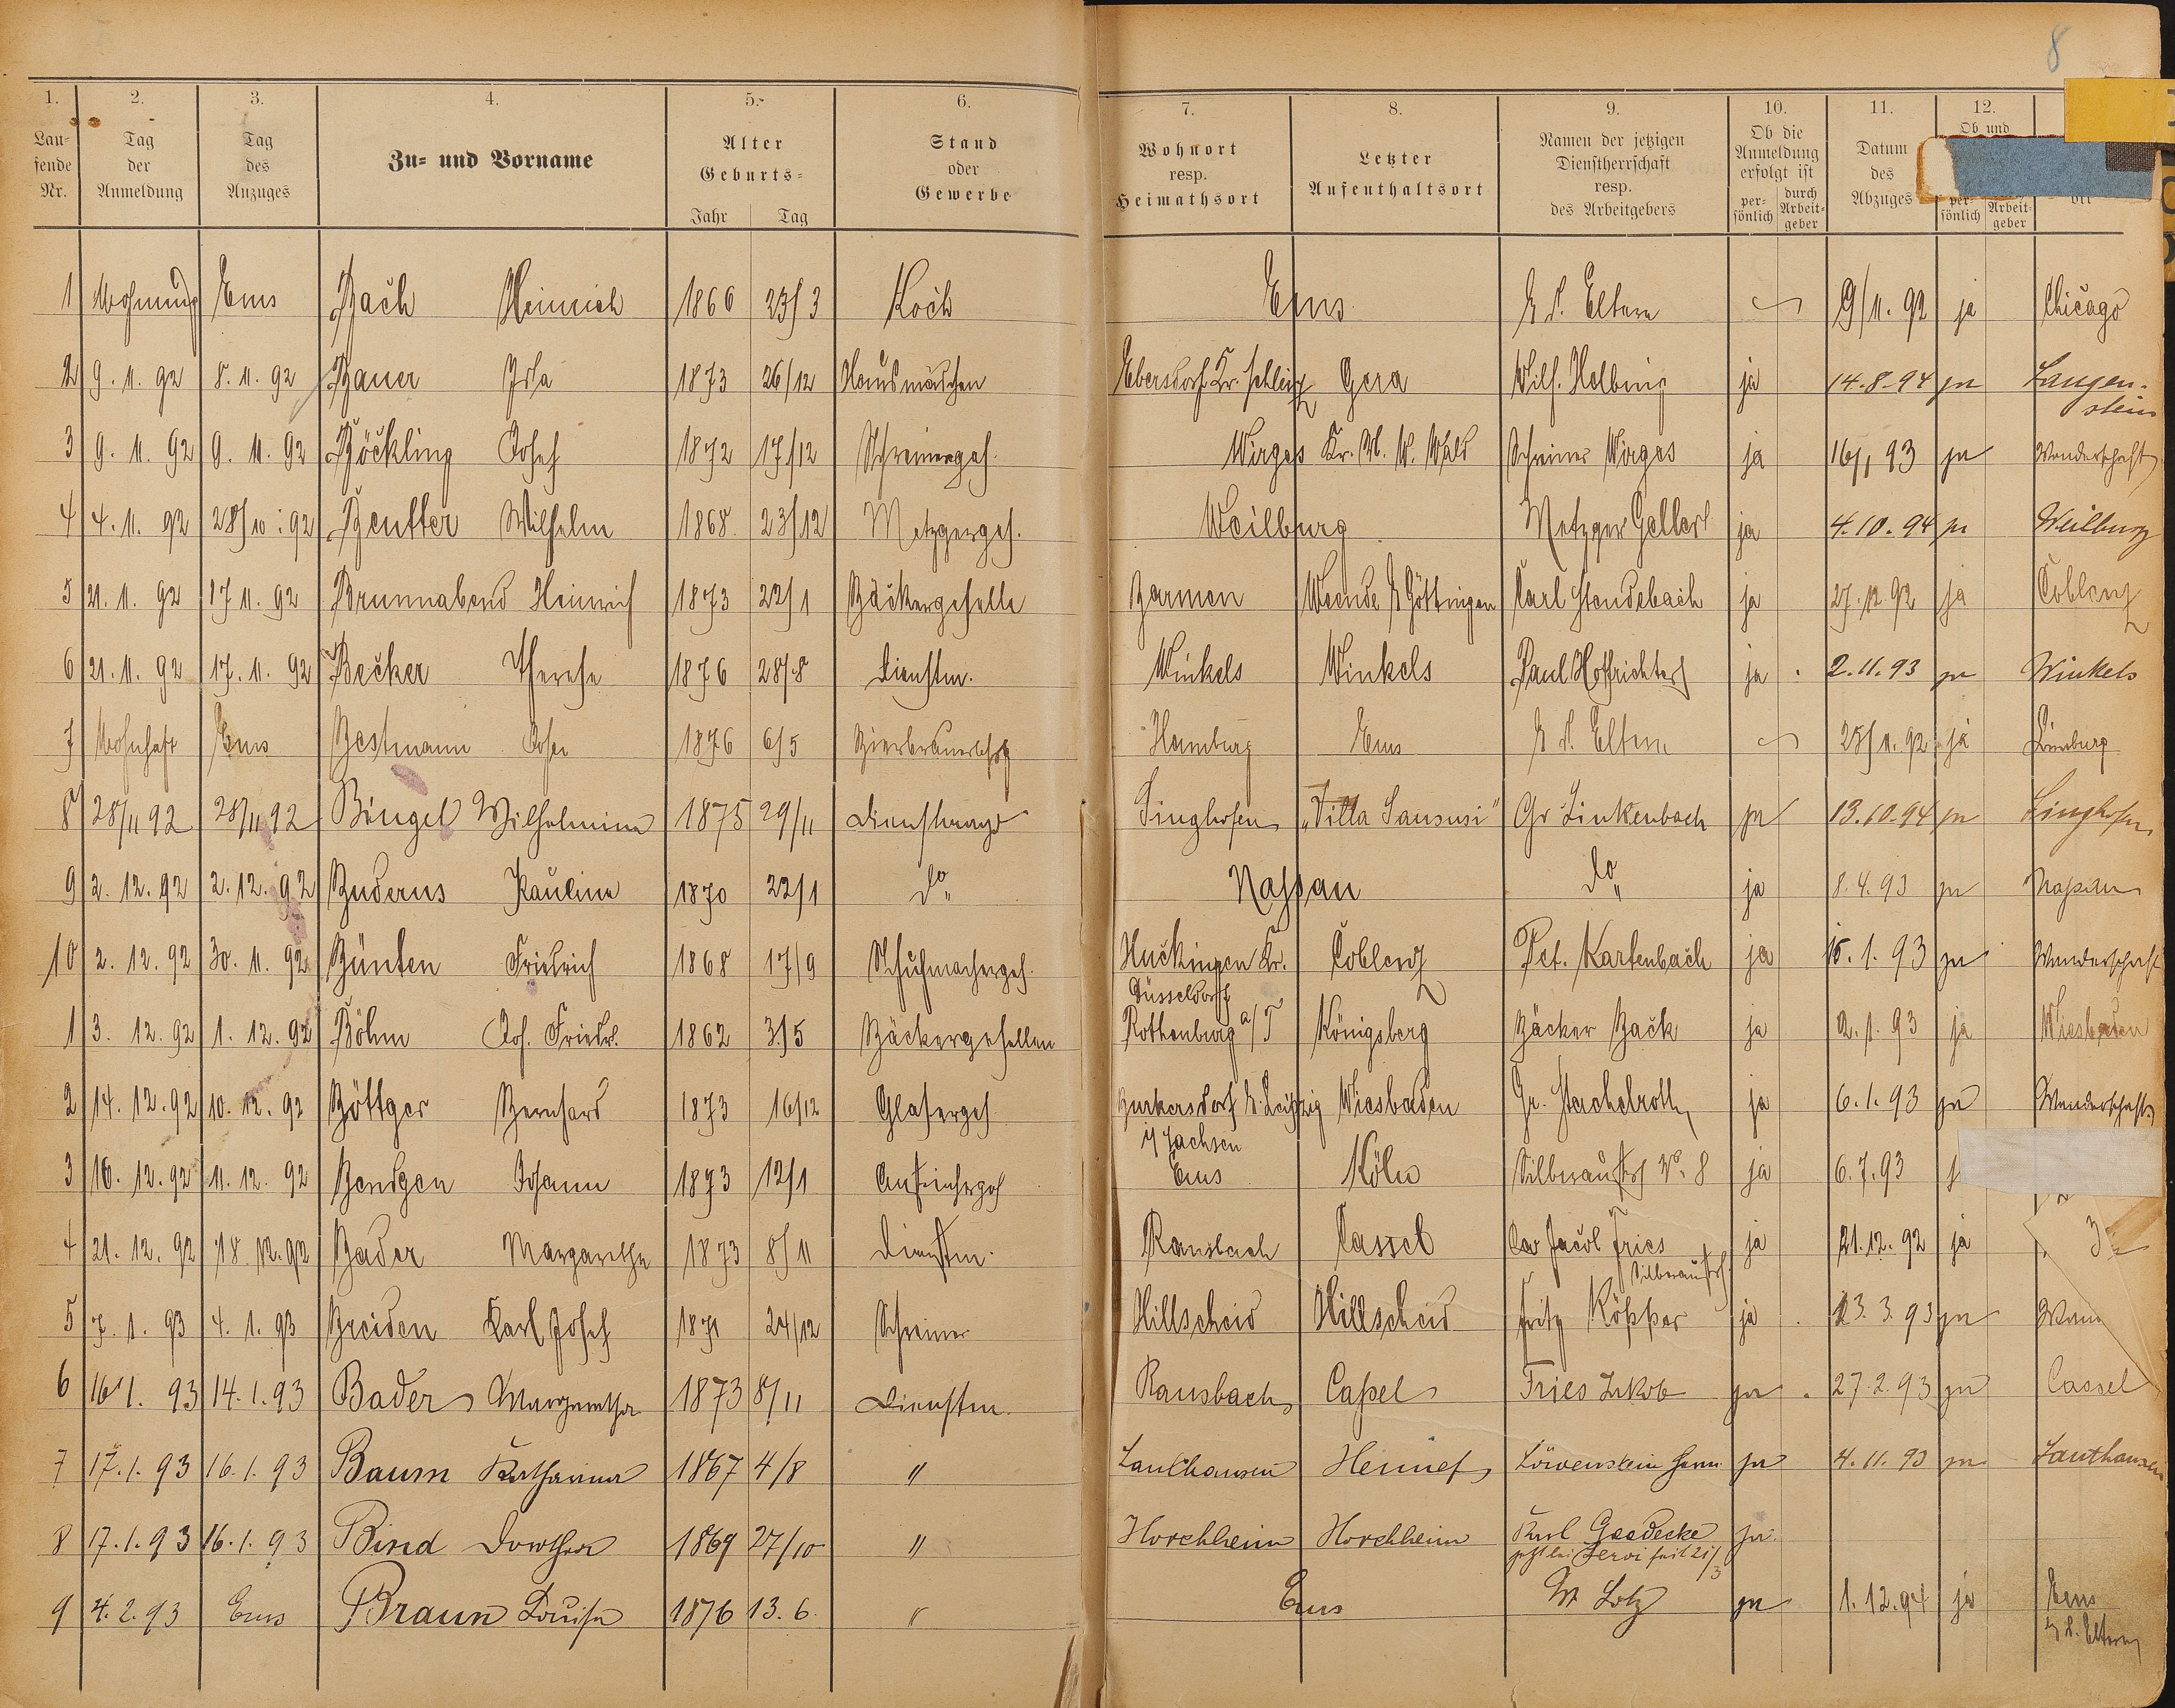 8
1. 2. 3. 4. 5. 6. 7. 8. 9. 10. 11. 12.
Laufende Nr. Tag der Anmeldung Tag des Anzuges Zu- und Vorname Alter Geburts- Jahr Tag Stand oder Gewerbe Wohnort resp. Heimathsort Letzter Aufenthaltsort Namen der jetzigen Dienstherrschaft resp. des Arbeitgebers Ob die Anmeldung erfolgt ist persönlich durch Arbeitgeber Datum des Abzuges Ob und persönlich Arbeitgeber
1 Ems Bach Heinrich 1866 23/3 Koch Ems Eltern 9/11. 92 ja Chicago
2 9. 11. 92 8. 11. 92 Bauer Ida 1873 26/12 Hausmädchen Ebersdorf Kr. Schleiz Gera Wilh. Helbing ja 14.8.94 ja Langenstein
3 9. 11. 92 9. 11. 92 Böckling Josef 1872 17/12 Schreinerges. Wirges Kr. U. W. Wald Schreiner Wirges ja 16/1 93 ja Wanderschaft
4 4. 11. 92 28/10. 92 Beutter Wilhelm 1868 23/12 Metzgerges. Weilburg Metzger Gellert ja 4.10.94 ja Weilburg
5 21. 11. 92 17 11. 92 Brunnabend Heinrich 1873 22/1 Bäckergeselle Barmen Weende b Göttingen Carl Stendebach ja 27. 12. 92 ja Coblenz
6 21. 11. 92 17. 11. 92 Becker Therese 1876 28/8 Dienstm. Winkels Winkels Paul Hoffrichter ja 2.11.93 ja Winkels
7 Wohnhaft Ems Bestmann 1876 6/5 Hamburg Ems Eltern 25/11. 92 ja Limburg
8 28/11 92 28/11 92 Bingel Wilhelmine 1875 29/11 Dienstmagd Singhofen „Villa Sansusi" Gr Linkenbach ja 13.10.94 ja Singhofen
9 2. 12. 92 2. 12. 92 Buderus Pauline 1870 22/1 do Nassau do ja 8.4.93 ja Nassau
10 2. 12. 92 30. 11. 92 Bünten Friedrich 1868 17/9 Schuhmacherges. Huckingen Kr. Düsseldorf Coblenz Pet. Kartenbach ja 15. 1. 93 ja Wanderschaft
1 3. 12. 92 1. 12. 92 Böhm Joh. Friedr. 1862 3/5 Bäckergesellen Rothenburg a/T Königsberg Bäcker Back ja 2. 1. 93 ja Wiesbaden
2 14. 12. 92 10. 12. 92 Böttger Bernhard 1873 16/12 Glaserges. Burkersdorf b. Leipzig i/ Sachsen Wiesbaden Gr. Stachelroth ja 6. 1. 93 ja Wanderschaft
3 16. 12. 92 11. 12. 92 Bendgen Johann 1873 12/1 Anstreichergeh Ems Köln Silberaustr No. 8 ja 6.7.93
4 21. 12. 92 18. 12. 92 Bader Margarethe 1873 8/11 Dienstm. Ransbach Cassel Jacob Fries Silberaustr. ja 21. 12. 92 ja
5 7. 1. 93 4. 1. 93 Breiden Karl Josef 1871 24/12 Schreiner Hillscheid Hillscheid Fritz Köpper ja 23. 3. 93 ja Wan
6 16 1. 93 14. 1. 93 Bader Margaretha 1873 8/11 Dienstm. Ransbach Caßel Fries Jakob ja 27.2.93 ja Cassel
7 17. 1. 93 16. 1. 93 Baum Katharina 1867 4/8 " Lauthausen Hennef Löwenstein Herm ja 4. 11. 93 ja Lauthausen
8 17. 1. 93 16. 1. 93 Bind Dorothea 1869 27/10 " Horchheim Horchheim Karl Goedecke jetzt bei Servi seit 21/3 ja
9 4. 2. 93 Ems Braun Louise 1876 13. 6. " Ems W Lotz ja 1. 12. 94 ja Ems Eltern